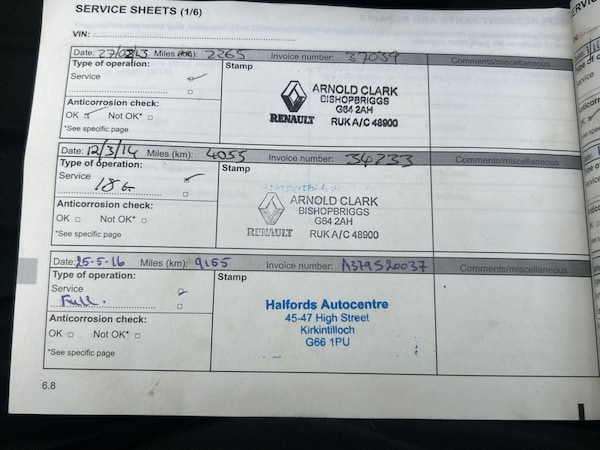 SERVICE SHEETS (1/6)
VIN:
Date: 27/02/13 Miles (km): 2265 Invoice number: 37039 Comments/miscellaneous
Type of operation: Stamp
Service
ARNOLD CLARK
BISHOPBRIGGS
G64 2AH
RENAULT RUK A/C 48900
Anticorrosion check:
OK Not OK*
*See specific page
Date: 12/3/14 Miles (km): 4055 Invoice number: 34233 Comments/miscellaneous
Type of operation: Stamp
Service
ARNOLD CLARK
BISHOPBRIGGS
G64 2AH
RENAULT RUK A/C 48900
Anticorrosion check:
OK Not OK*
*See specific page
Date: 25-5-16 Miles (km): 9155 Invoice number: A379520037 Comments/miscellaneous
Type of operation: Stamp
Service
Full.
Halfords Autocentre
45-47 High Street
Kirkintilloch
G66 1PU
Anticorrosion check:
OK Not OK*
*See specific page
6.8